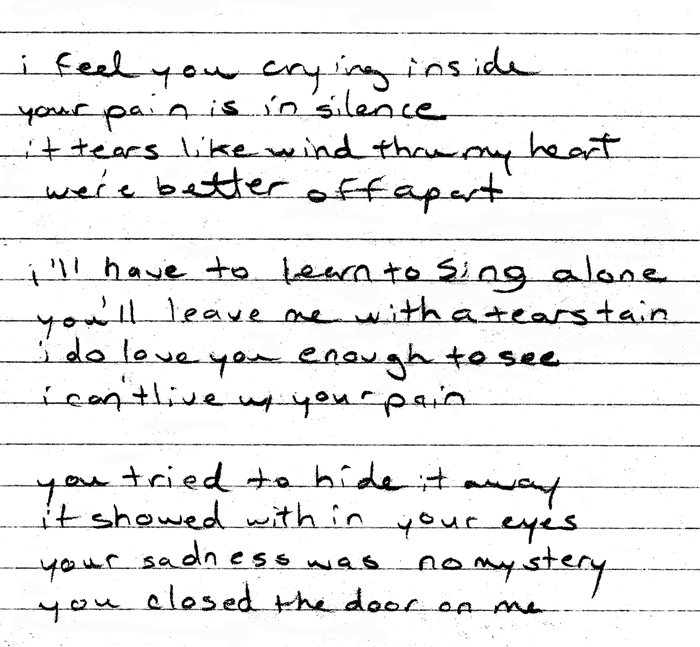 i feel you crying inside
your pain is in silence
it tears like wind thru my heart
we're better off apart
i'll have to learn to sing alone
you'll leave me with a tearstain
i do love you enough to see
i can't live w/ your pain
you tried to hide it away
it showed within your eyes
your sadness was no mystery
you closed the door on me